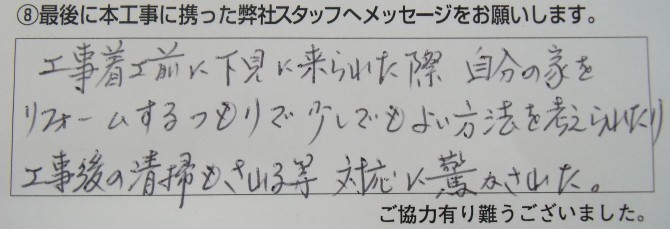 ⑧最後に本工事に携った弊社スタッフへメッセージをお願いします。
工事着工前に下見に来られた際 自分の家を
リフォームするつもりで少しでもよい方法を考えられたり
工事後の清掃もされる等 対応に驚かされた。
ご協力有り難うございました。